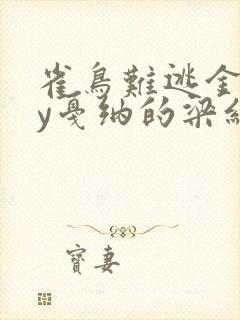 雀鳥難逃金
y戛纳的梁緣
寶妻